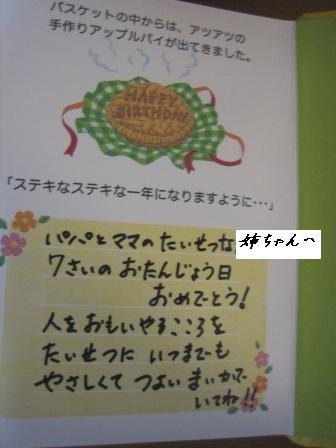 バスケットの中からは、アツアツの
手作りアップルパイが出てきました。
HAPPY
BIRTHDAY
「ステキなステキな一年になりますように・・・」
パパとママのたいせつな 姉ちゃんへ
7さいの おたんじょう日
おめでとう!
人を おもいやる こころを
たいせつに いつまでも
やさしくて つよい まいかで
いてね!!